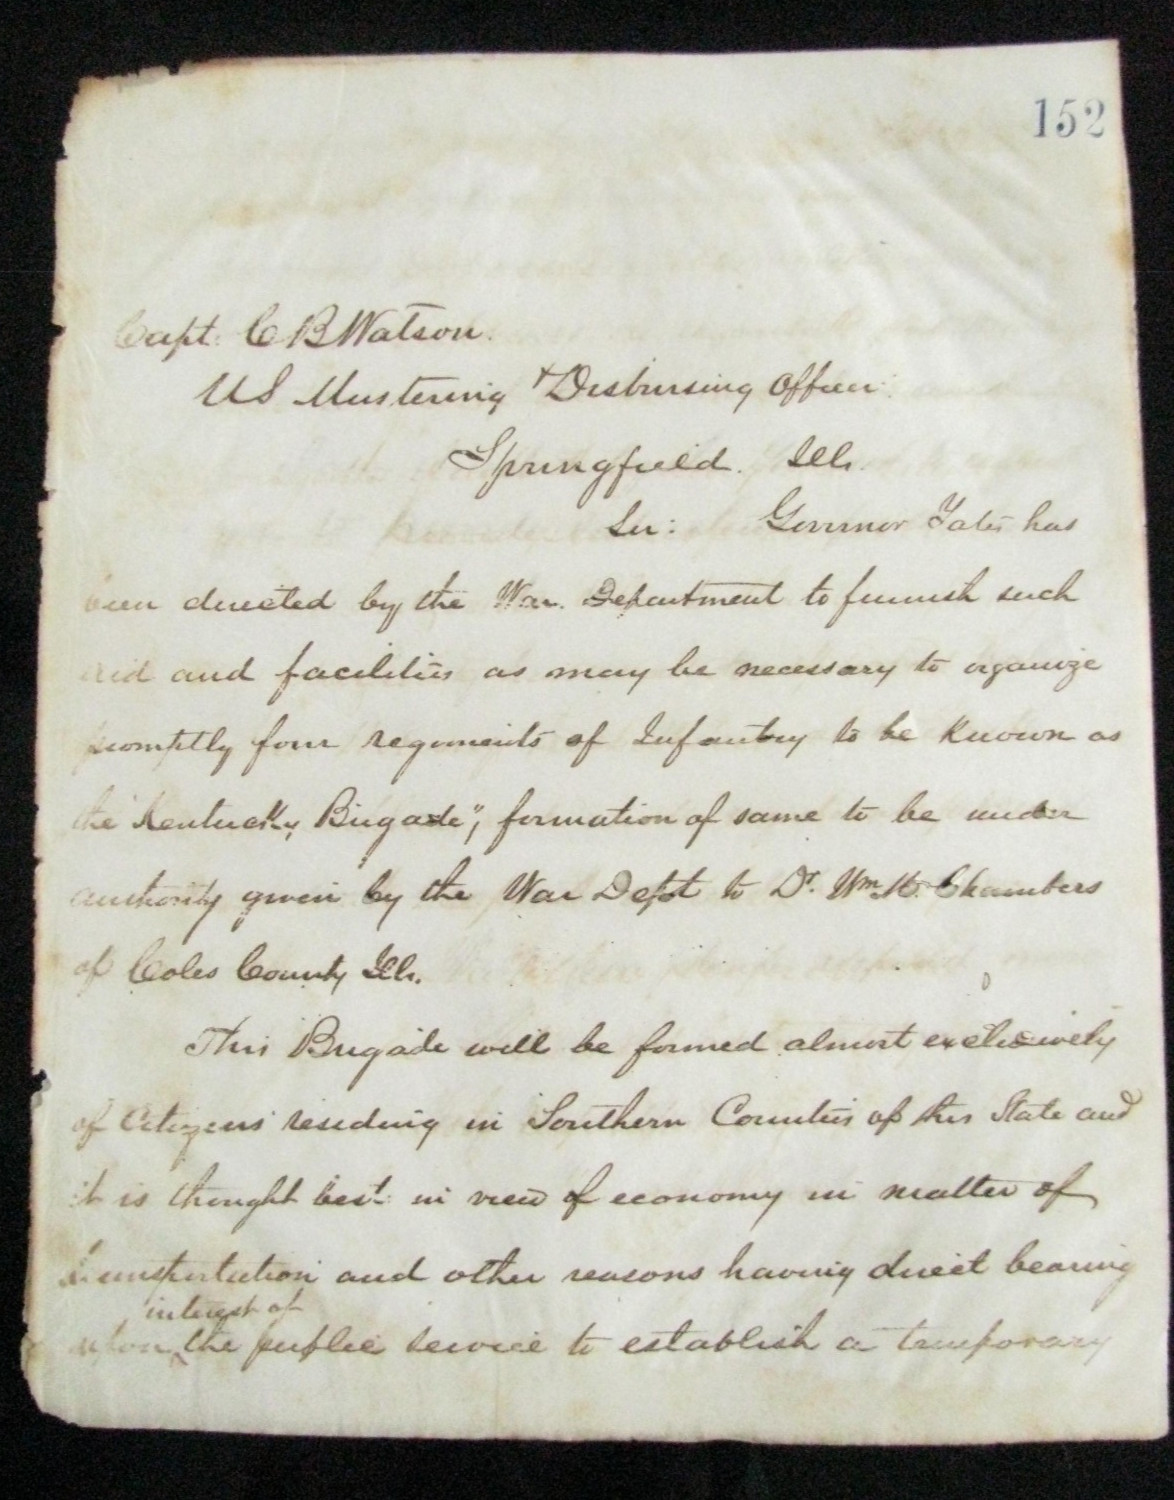 152
Capt. C B Watson.
US Mustering & Disbursing Officer.
Springfield. Ills.
Sir: Governor Yates has
been directed by the War. Department to furnish such
aid and facilities as may be necessary to organize
promptly four regiments of Infantry to be known as
the "Kentucky Brigade", formation of same to be under
authority given by the War Dept to Dr. Wm. M. Chambers
of Coles County Ills.
This Brigade will be formed almost exclusively
of Citizens residing in Southern Counties of this State and
it is thought best in view of economy in matter of
transportation and other reasons having direct bearing
interest of
upon the public service to establish a temporary